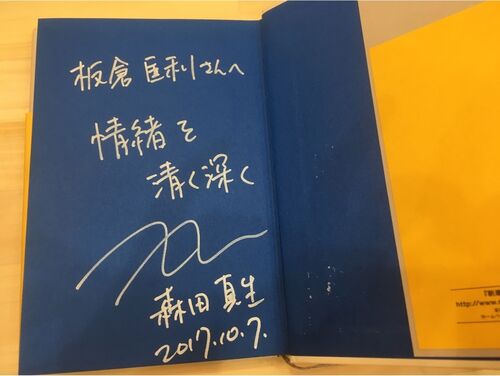 板倉 匡利さんへ
情緒を
清く深く
森田 真生
2017.10.7.
http://www.